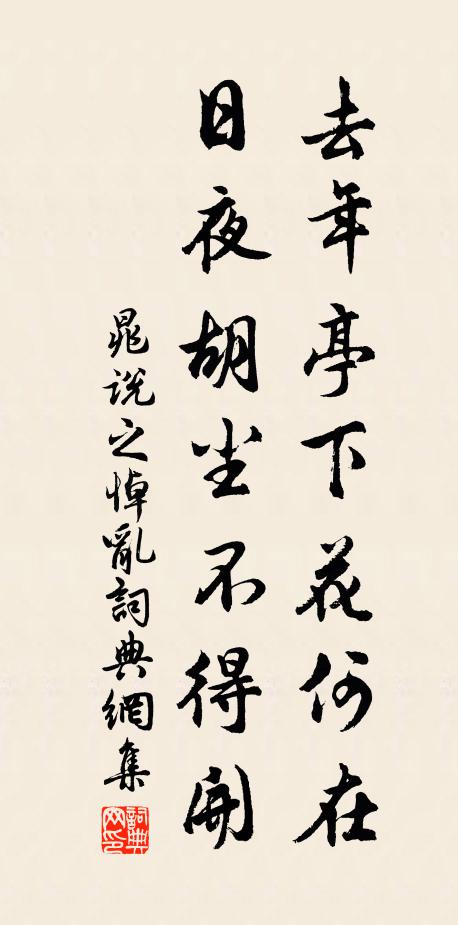 去年亭下花何在
日夜胡尘不得開
晁說之悼亂詞典網集
詞典网印